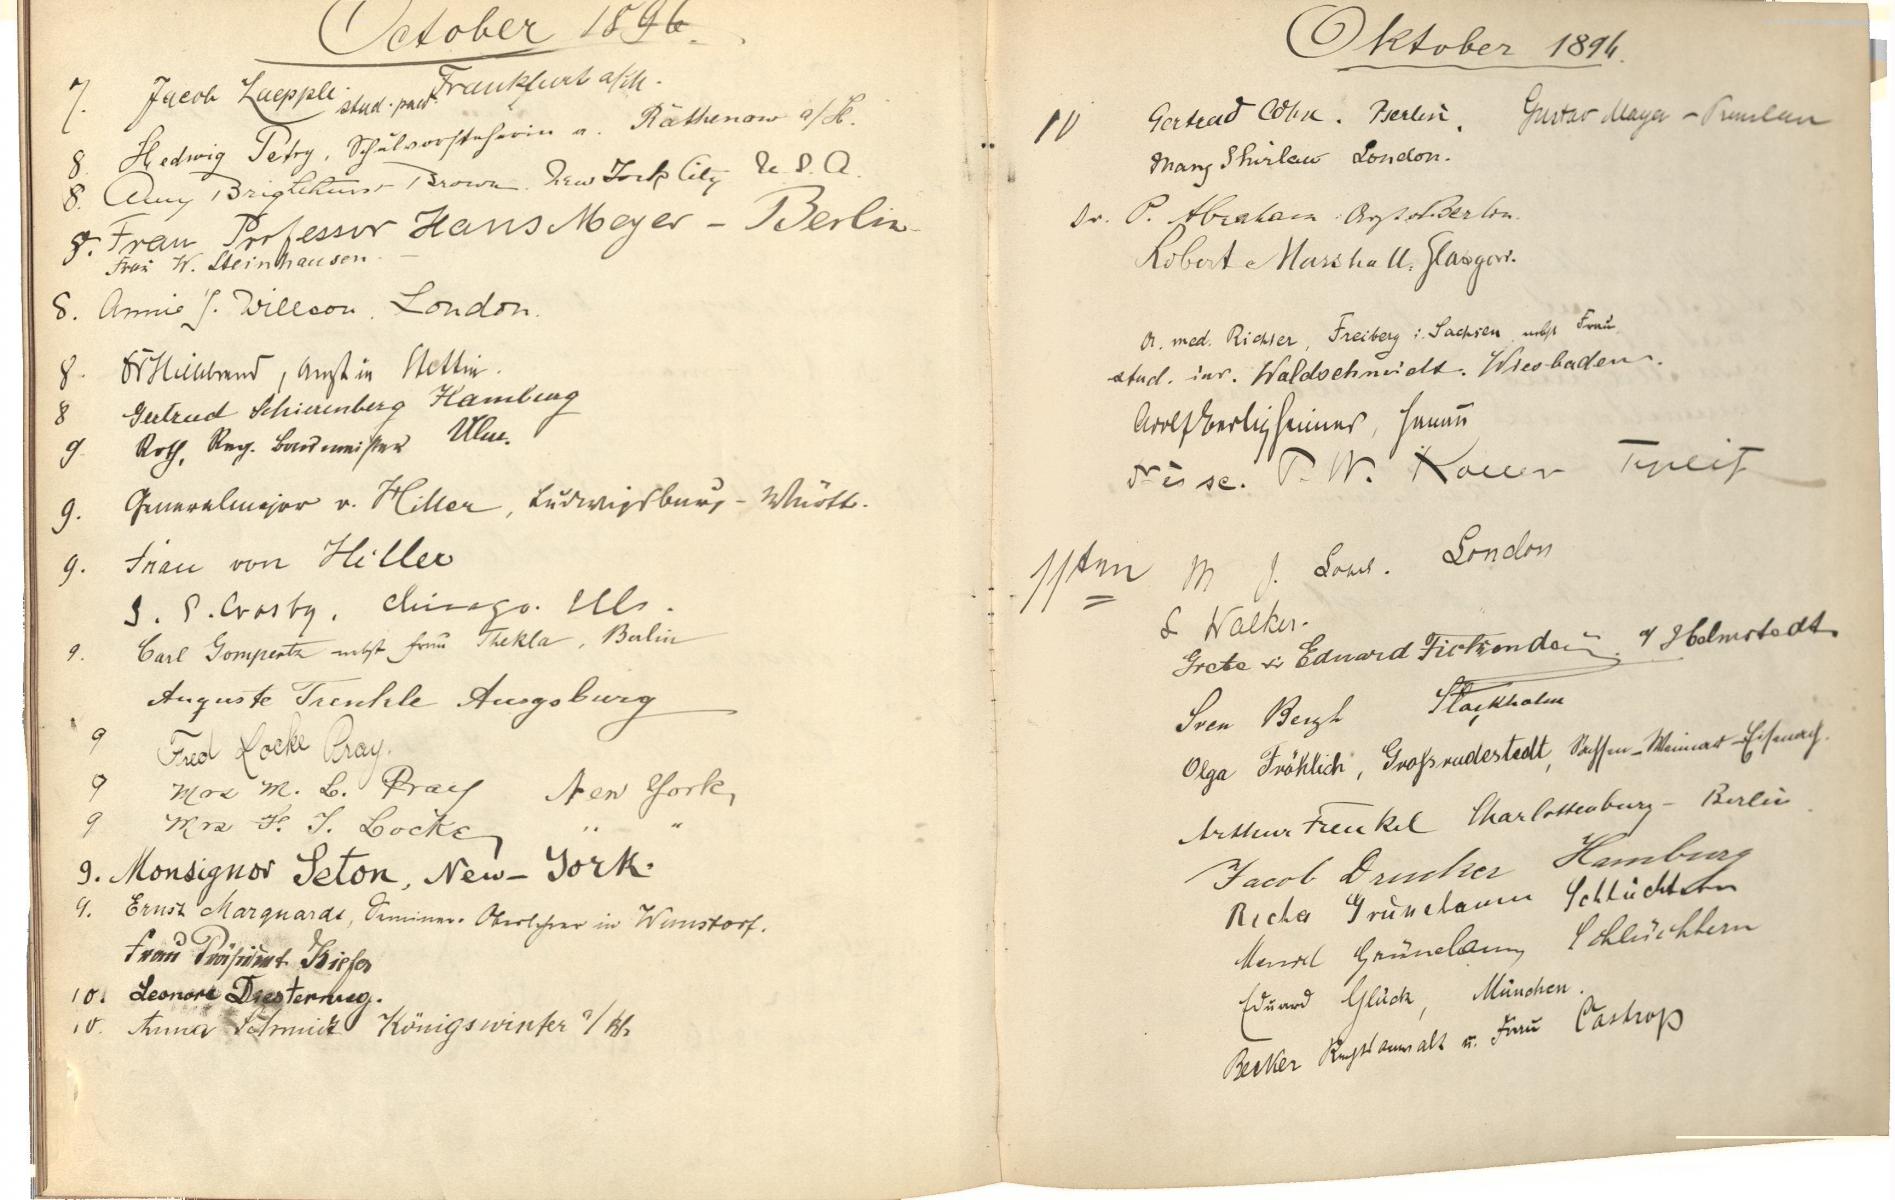 October 1896.
7. Jacob Laeppli stud. Frankfurt a/M.
8. Hedwig Petry, Schulvorsteherin a. Rathenow a/H.
8. Amy Brighthurst Brown. New York City U. S. A.
8. Frau Professor Hans Meyer – Berlin
Frau W. Steinhausen
8. Annie J. Willson. London.
8. Dr Hildebrand, Arzt in Stettin.
8 Gertrud Schierenberg Hamburg
9 Roth, Reg. Baumeister Ulm.
9. Generalmajor v. Hiller, Ludwigsburg – Württ.
9. Frau von Hiller
S. S. Crosby. Chicago. Ills.
9. Carl Gompertz nebst Frau Thekla, Berlin
Auguste Trenkle Augsburg
9 Fred Locke Pray.
9 Mrs M. L. Pray New York,
9 Mrs F. J. Locke, " "
9. Monsignor Seton, New-York.
9. Ernst Marquardt, Seminar-Oberlehrer in Wunstorf.
Frau Präsident Kiefer
10. Leonore Diesterweg.
10. Anna Schmidt Königswinter a/Rh.
Oktober 1896.
10 Gertrud Cohn. Berlin. Gustav Mayer –
Mary Shirlaw London.
Dr. P. Abraham Arzt Berlin.
Robert Marshall. Glasgow.
Dr. med. Richter, Freiberg i. Sachsen nebst Frau
stud. iur. Waldschmidt. Wiesbaden.
Adolf Hanau
P. W.
11ten M J. London
S Walker.
Grete u Eduard Helmstedt.
Sven Bergh Stockholm
Olga Fröhlich, Großrudestedt, Sachsen-Weimar-Eisenach.
Arthur Frenkel Charlottenburg – Berlin
Jacob Drucker Hamburg
Recha Grünebaum Schlüchtern
Mendel Grünebaum Schlüchtern
Eduard Glück, München.
Becker Rechtsanwalt u. Frau Castrop